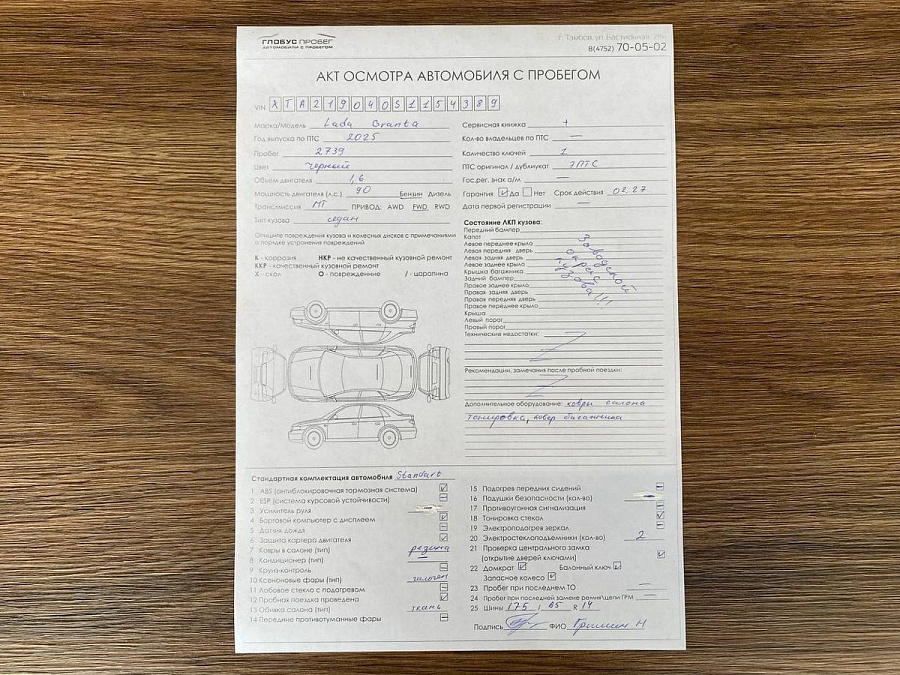 ГЛОБУС ПРОБЕГ
АВТОМОБИЛИ С ПРОБЕГОМ
г. Тамбов, ул. Бастионная,
8(4752) 70-05-02
АКТ ОСМОТРА АВТОМОБИЛЯ С ПРОБЕГОМ
VIN XTA219040S1154389
Марка/Модель Lada Granta
Год выпуска по ПТС 2025
Пробег 2739
Цвет Черный
Объем двигателя 1,6
Мощность двигателя (л.с.) 90 Бензин Дизель
Трансмиссия МТ ПРИВОД: AWD FWD RWD
Тип кузова седан
Опишите повреждения кузова и колесных дисков с примечаниями
о порядке устранения повреждений
К - коррозия НКР - не качественный кузовной ремонт
ККР - качественный кузовной ремонт
Х - скол О - повреждение / - царапина
Сервисная книжка +
Кол-во владельцев по ПТС —
Количество ключей 2
ПТС оригинал / дубликат ЭПТС
Гос.рег. знак а/м —
Гарантия Да Нет Срок действия 02.27
Дата первой регистрации —
Состояние ЛКП кузова:
Передний бампер
Капот
Левое переднее крыло
Левая передняя дверь
Левая задняя дверь
Левое заднее крыло
Крышка багажника
Задний бампер
Правое заднее крыло
Правая задняя дверь
Правая передняя дверь
Правое переднее крыло
Крыша
Левый порог
Правый порог
Заводской окрас кузова!!!
Технические недостатки:
Рекомендации, замечания после пробной поездки:
Дополнительное оборудование: ковры салона
тонировка, ковер багажника
Стандартная комплектация автомобиля Standart
1 ABS (антиблокировочная тормозная система)
2 ESP (система курсовой устойчивости)
3 Усилитель руля
4 Бортовой компьютер с дисплеем
5 Датчик дождя
6 Защита картера двигателя
7 Ковры в салоне (тип) резина
8 Кондиционер (тип) —
9 Круиз-контроль
10 Ксеноновые фары (тип) галоген
11 Лобовое стекло с подогревом
12 Пробная поездка проведена
13 Обивка салона (тип) ткань
14 Передние противотуманные фары
15 Подогрев передних сидений
16 Подушки безопасности (кол-во)
17 Противоугонная сигнализация
18 Тонировка стекол
19 Электроподогрев зеркал
20 Электростеклоподъемники (кол-во) 2
21 Проверка центрального замка
(открытие дверей ключами)
22 Домкрат Балонный ключ
Запасное колесо
23 Пробег при последнем ТО —
24 Пробег при последней замене ремня/цепи ГРМ —
25 Шины 175 / 65 R 14
Подпись ФИО Гришин Н